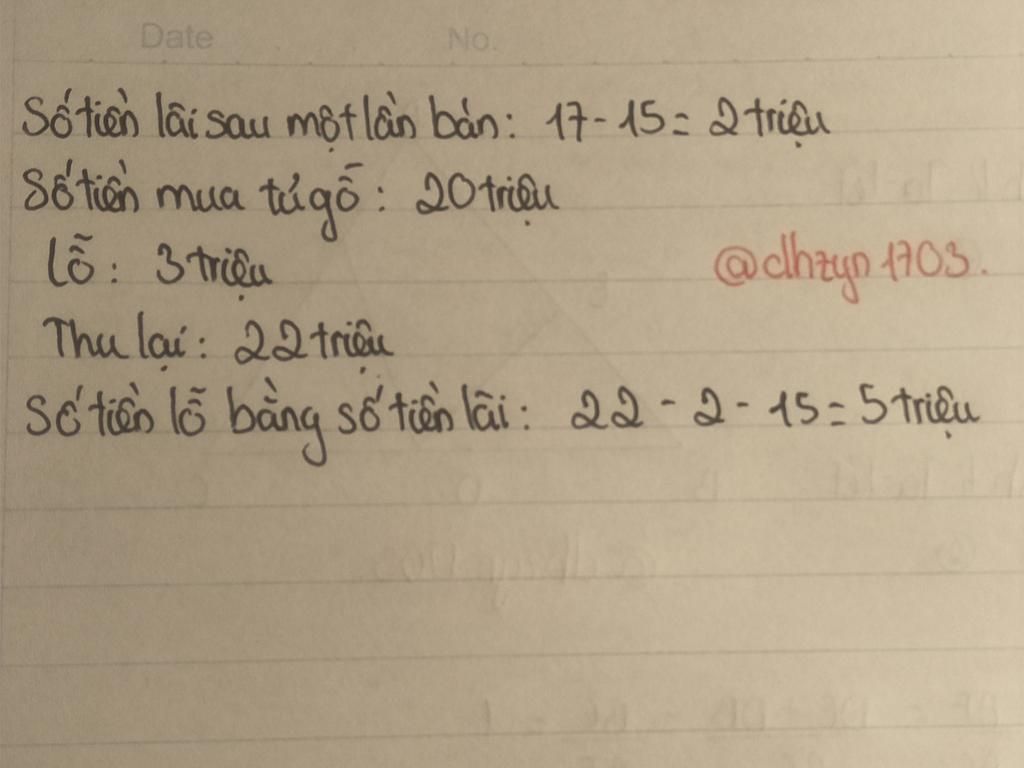 Date No.
Số tiền lãi sau một lần bán: 17 - 15 = 2 triệu
Số tiền mua tủ gỗ: 20 triệu
Lỗ: 3 triệu @dhzyn1703.
Thu lại: 22 triệu
Số tiền lỗ bằng số tiền lãi: 22 - 2 - 15 = 5 triệu